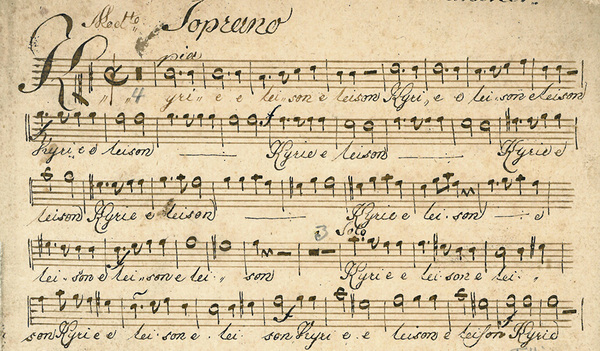 Soprano
pia
4 Kyri,, e e lei,, son e leison Kyri,, e e lei,, son e leison
f
Kyri,, e e leison Kyrie e leison Kyrie e
leison Kyrie e leison Kyrie e lei,, son e
3 Solo
lei,, son e lei,, son e lei,, son Kyrie e leison e lei,,
son Kyrie e lei,, son e lei son Kyri,, e e leison e leison Kyrie
f